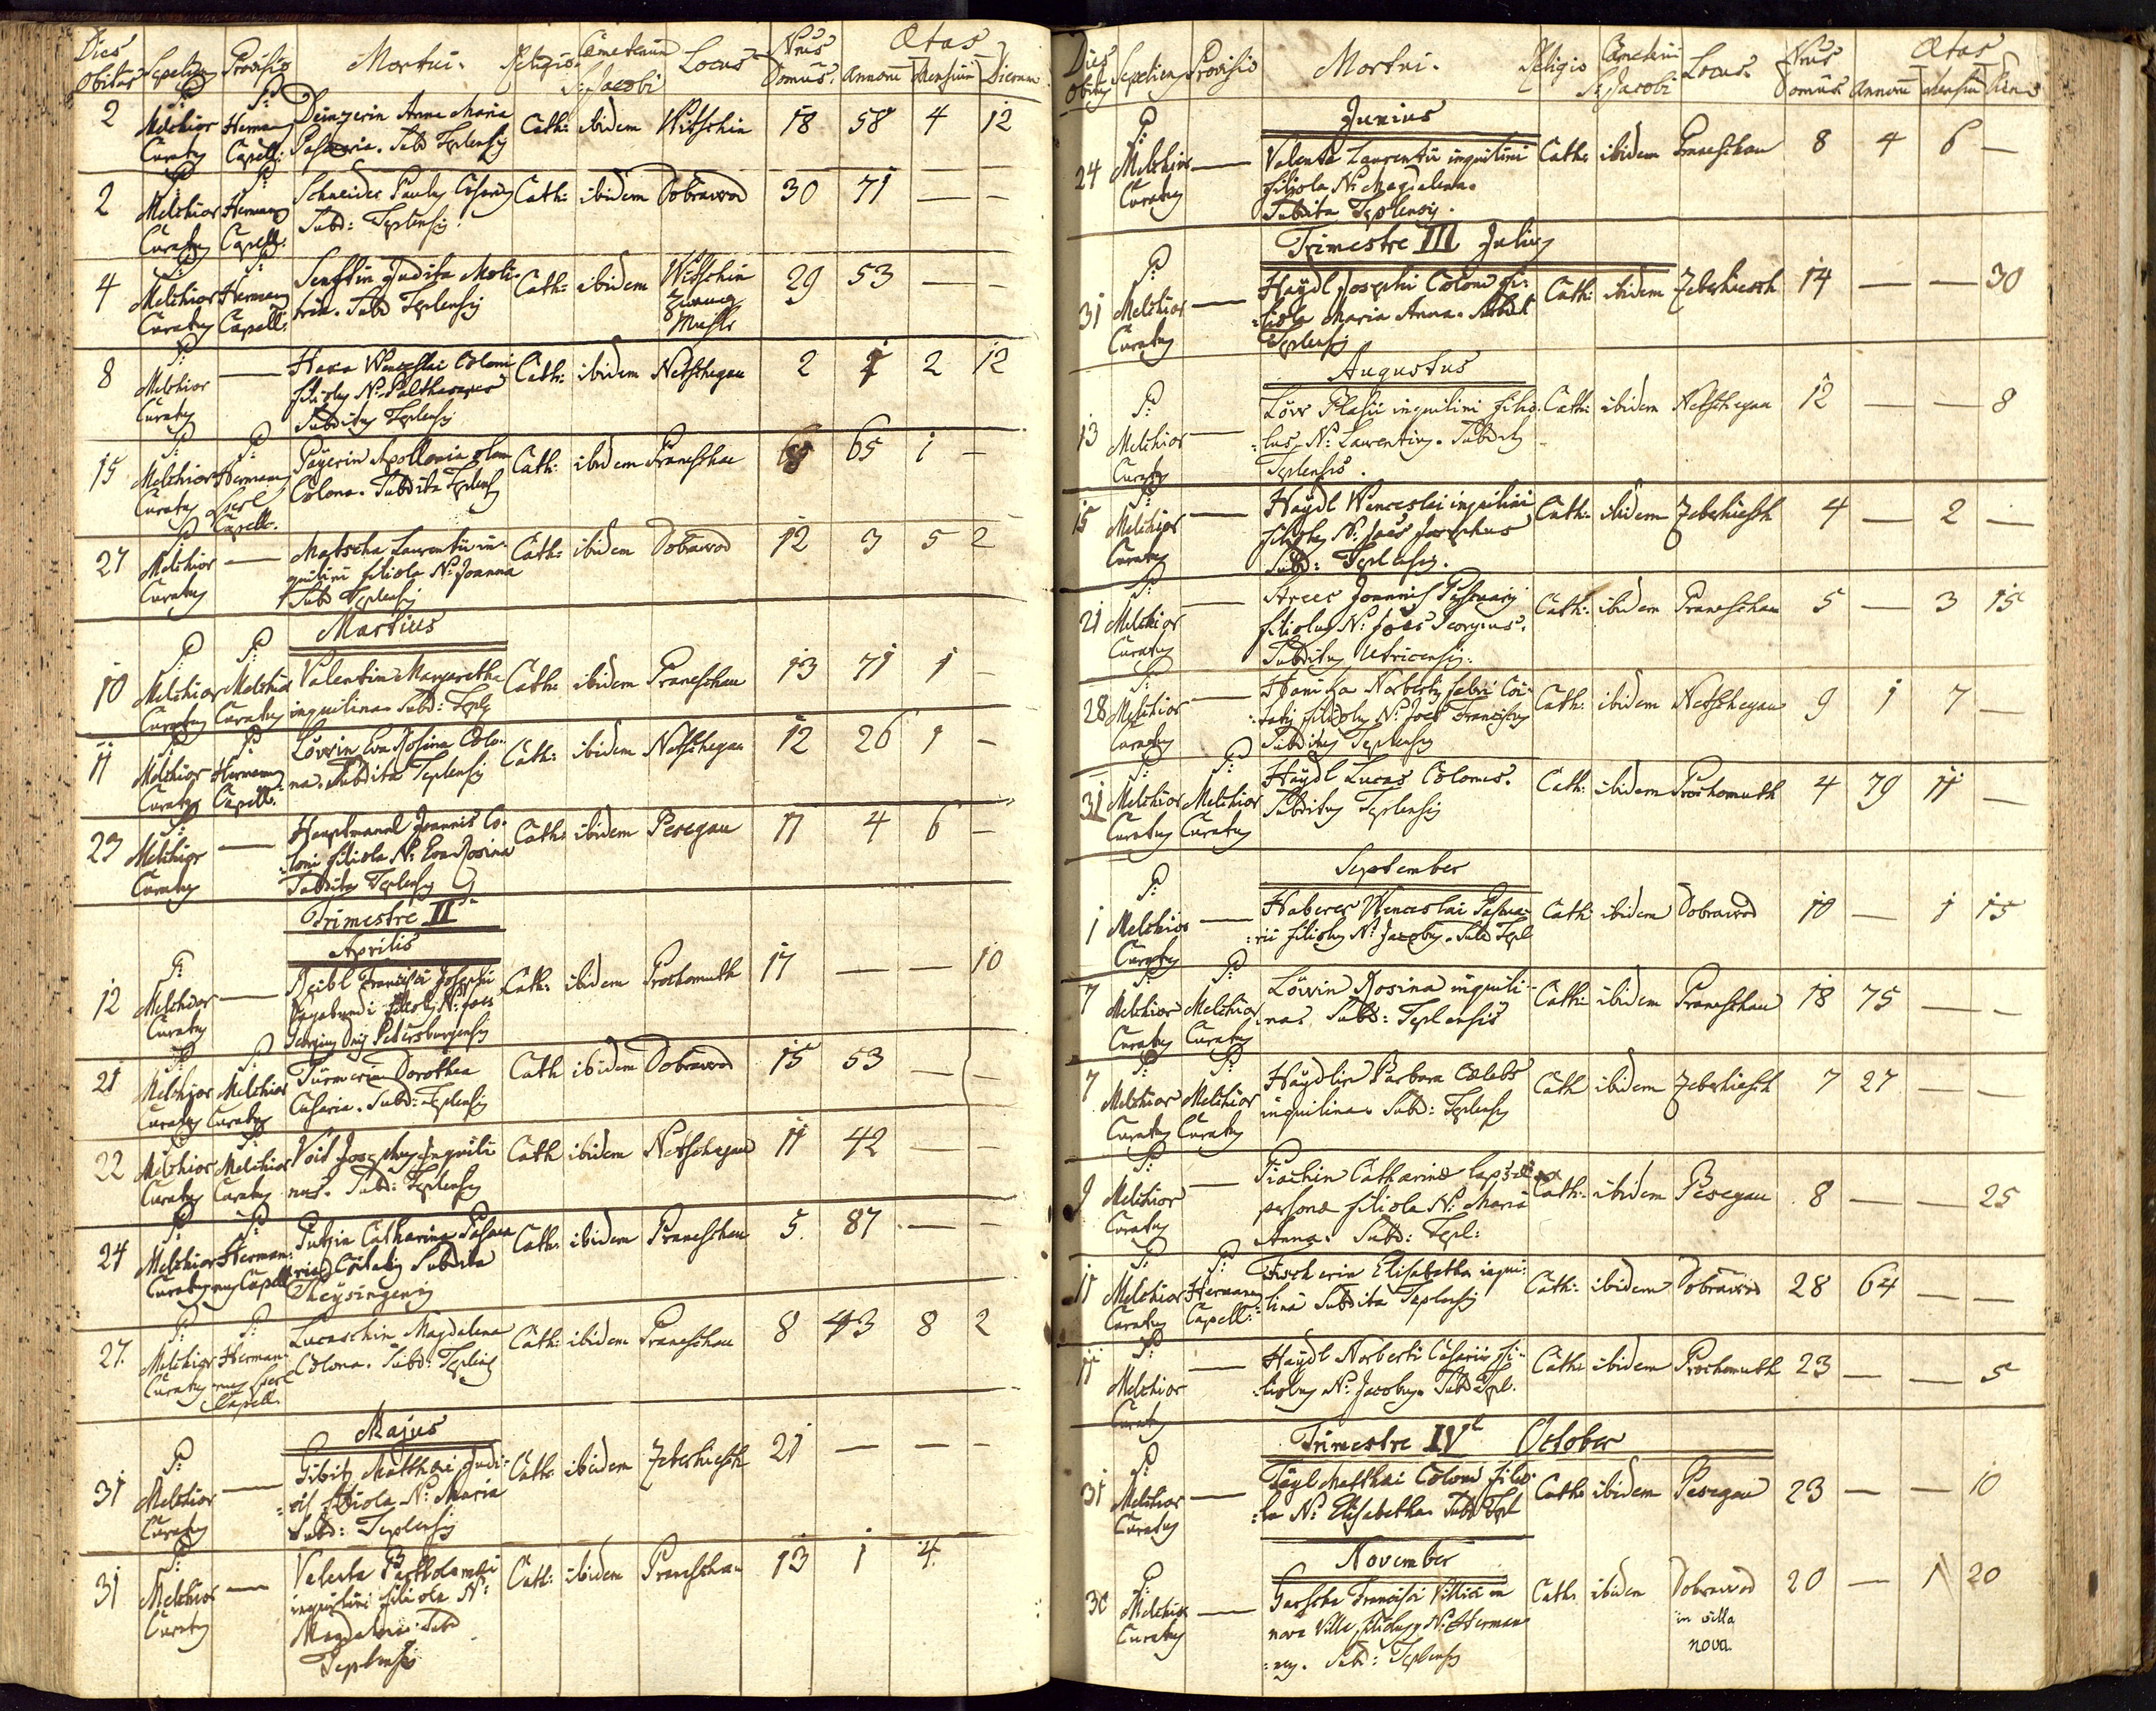 Dies Obitus Sepeliens Provisio Mortui. Religio Cœmeterium S: Jacobi Locus Nrus Domus. Ætas Annorum Mensium Dierum
2 P: Melchior Curatus P: Herman Capell: Deinzerin Anna Maria
Subd Teplensis Cath: ibidem Witschin 18 58 4 12
2 P: Melchior Curatus P: Hermanus Capell: Schneider Paulus Casarius
Subd: Teplensis. Cath: ibidem Dobrawod 30 71 — —
4 P: Melchior Curatus P: Hermanus Capell: Senftin Judita Moli-
trix. Subd Teplensis Cath: ibidem Witschin Zwang Muhle 29 53 — —
8 P: Melchior Curatus — Haxa Wenceslai Coloni
filiolus N: Balthasar
Subditus Teplensis Cath: ibidem Netschegau 2 2 12
15 P: Melchior Curatus P: Hermanus Capell. Payerin Apollonia olim
Colona. Subdita Teplens Cath: ibidem Braneschau 65 1 —
27 P Melchior Curatus — Matscha Laurentii in-
quilini filiola N: Joanna
Subd Teplensis Cath: ibidem Dobrawod 12 3 5 2
Martius
10 P: Melchior Curatus P: Melchior Curatus Valentin Margaretha
inquilina Subd: Tepl Cath: ibidem Braneschau 13 71 1 —
11 P: Melchior Curatus P: Hermanus Capell: Löwin Eva Rosina Colo-
na. Subdita Teplensis Cath: ibidem Netschegau 12 26 1 —
23 P: Melchior Curatus — Hauptmannl Joannis Co-
loni filiola N: Eva Rosina
Subditus Teplensis Cath: ibidem Pesegau 11 4 6 —
Trimestre II
Aprilis
12 P: Melchior Curatus — Deibl Francisci Josephi
Vagabundi filiolus N: Joes
Georgius Dnij Petersburgensis Cath: ibidem Prochomuth 17 — — 10
21 P: Melchior Curatus P: Melchior Curatus Türmerin Dorothea
Casaria. Subd: Teplensis Cath ibidem Dobrawod 15 53 — —
22 P: Melchior Curatus P: Melchior Curatus Voit Josephus Inquili
nus. Subd: Teplensis Cath ibidem Netschegau 11 42 — —
24 P: Melchior Curatus P: Hermanus Capell Putzin Catharina
Subdita
Theysingensis Cath: ibidem Braneschau 5. 87 — —
27. P: Melchior Curatus P: Hermanus Capell. Lucaschin Magdalena
Colona. Subd: Teplens Cath: ibidem Braneschau 8 43 8 2
Majus
31 P: Melchior Curatus — Gibitz Matthæi Judi-
cis filiola N: Maria
Subd: Teplensis Cath: ibidem Zeberhiesch 21 — — —
31 P: Melchior Curatus — Valenta Bartholomæi
inquilini filiola N:
Magdalena: Subd
Teplensis Cath: ibidem Braneschau 13 1 4
Dies Obitus Sepeliens Provisio Mortui. Religio Cœmeterii S: Jacobi Locus Nrus Domus Ætas Annorum Mensium Dierum
Junius
24 P: Melchior Curatus — Valenta Laurentii inquilini
filiola N: Magdalena.
Subdita Teplensis. Cath: ibidem Braneschau 8 4 6 —
Trimestre III Julius
31 P: Melchior Curatus — Haydl Josephi Coloni fi-
liola Maria Anna. Subdit
Teplensis Cath: ibidem Zeberhiesch 14 — — 30
Augustus
13 P: Melchior Curatus — Löw Blasii inquilini filio-
lus N: Laurentius. Subdits
Teplensis. Cath: ibidem Netschegau 12 — — 8
15 P: Melchior Curatus — Haydl Wenceslai inquilini
filiolus N: Joes Josephus
Subd: Teplensis. Cath: ibidem Zeberhiesch 4 — 2 —
21 P: Melchior Curatus — Joannis
filiolus N: Joes Georgius.
Subditus Utricensis. Cath: ibidem Braneschau 5 — 3 15
28 P: Melchior Curatus — Hanika Norberti fabri
filiolus N: Joes Franciscus
Subditus Teplensis Cath: ibidem Netschegau 9 1 7 —
31 P: Melchior Curatus P: Melchior Curatus Haydl Lucas Colonus.
Subditus Teplensis Cath: ibidem Prochomuth 4 79 11 —
September
1 P: Melchior Curatus — Haberer Wenceslai
filiolus N: Jacobus. Subd Tepl Cath ibidem Dobrawod 10 — 1 15
7 P: Melchior Curatus P: Melchior Curatus Löwin Rosina inquili-
na. Subd: Teplensis Cath: ibidem Braneschau 18 75 — —
7 P: Melchior Curatus P: Melchior Curatus Haydlin Barbara Cœlebs
inquilina. Subd: Teplensis Cath ibidem Zeberhiesch 7 27 — —
9 P: Melchior Curatus — Catharinæ lapsæ
personæ filiola N: Maria
Anna. Subd: Tepl: Cath: ibidem Pesegau 8 — — 25
11 P: Melchior Curatus P: Hermanus Capell: Fischerin Elisabetha inqui-
lina Subdita Teplensis Cath: ibidem Dobrawod 28 64 — —
11 P: Melchior Curatus — Haydl Norberti Casarii fi-
liolus N: Jacobus. Subd Tepl. Cath: ibidem Prochomuth 23 — — 5
Trimestre IV October
31 P: Melchior Curatus — Matthæi Coloni filio-
la N: Elisabetha. Subd Tepl Cath: ibidem Pesegau 23 — — 10
November
30 P: Melchior Curatus — Gascha Francisci Villici in
nova Villa filiolus N: Herman
-us. Subd: Teplensis Cath: ibidem Dobrawod
in villa
nova. 20 — 1 20